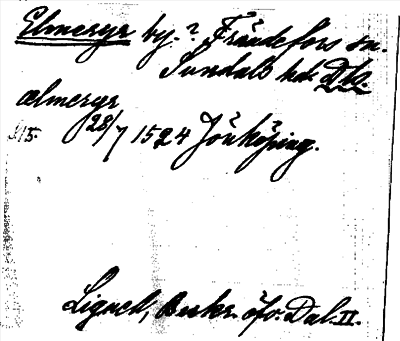 Elmeryr by.? Frändefors sn.
Sundals hd. Ds.
ælmeryr
28/7 1524 Jönköping.
Lignell, Beskr. öfv. Dal. II.